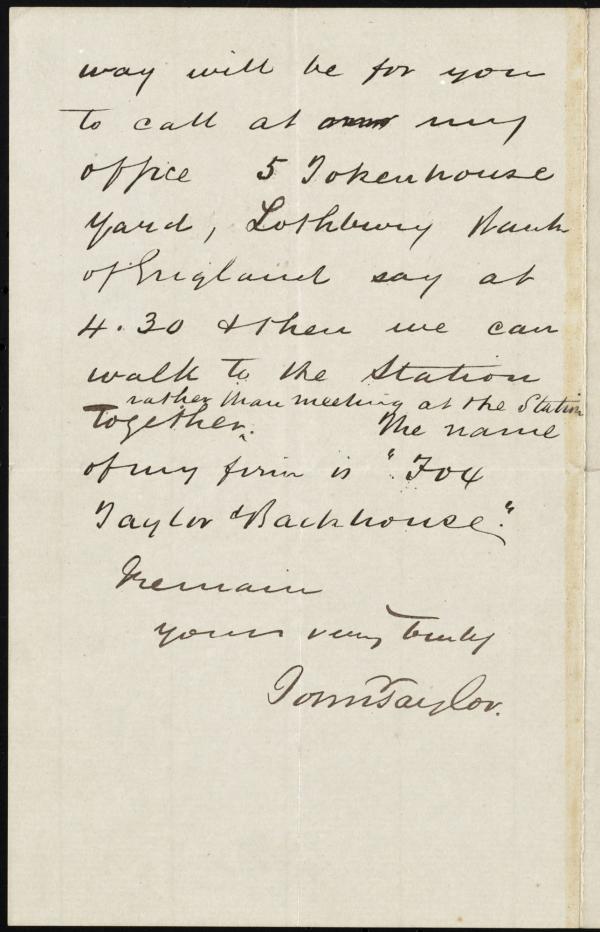 way will be for you
to call at my
office 5 Tokenhouse
Yard, Lothbury Bank
of England say at
4.30 & then we can
walk to the Station
rather than meeting at the Station
together. The name
of my firm is "Fox
Taylor & Backhouse."
I remain
yours very truly
John Taylor.